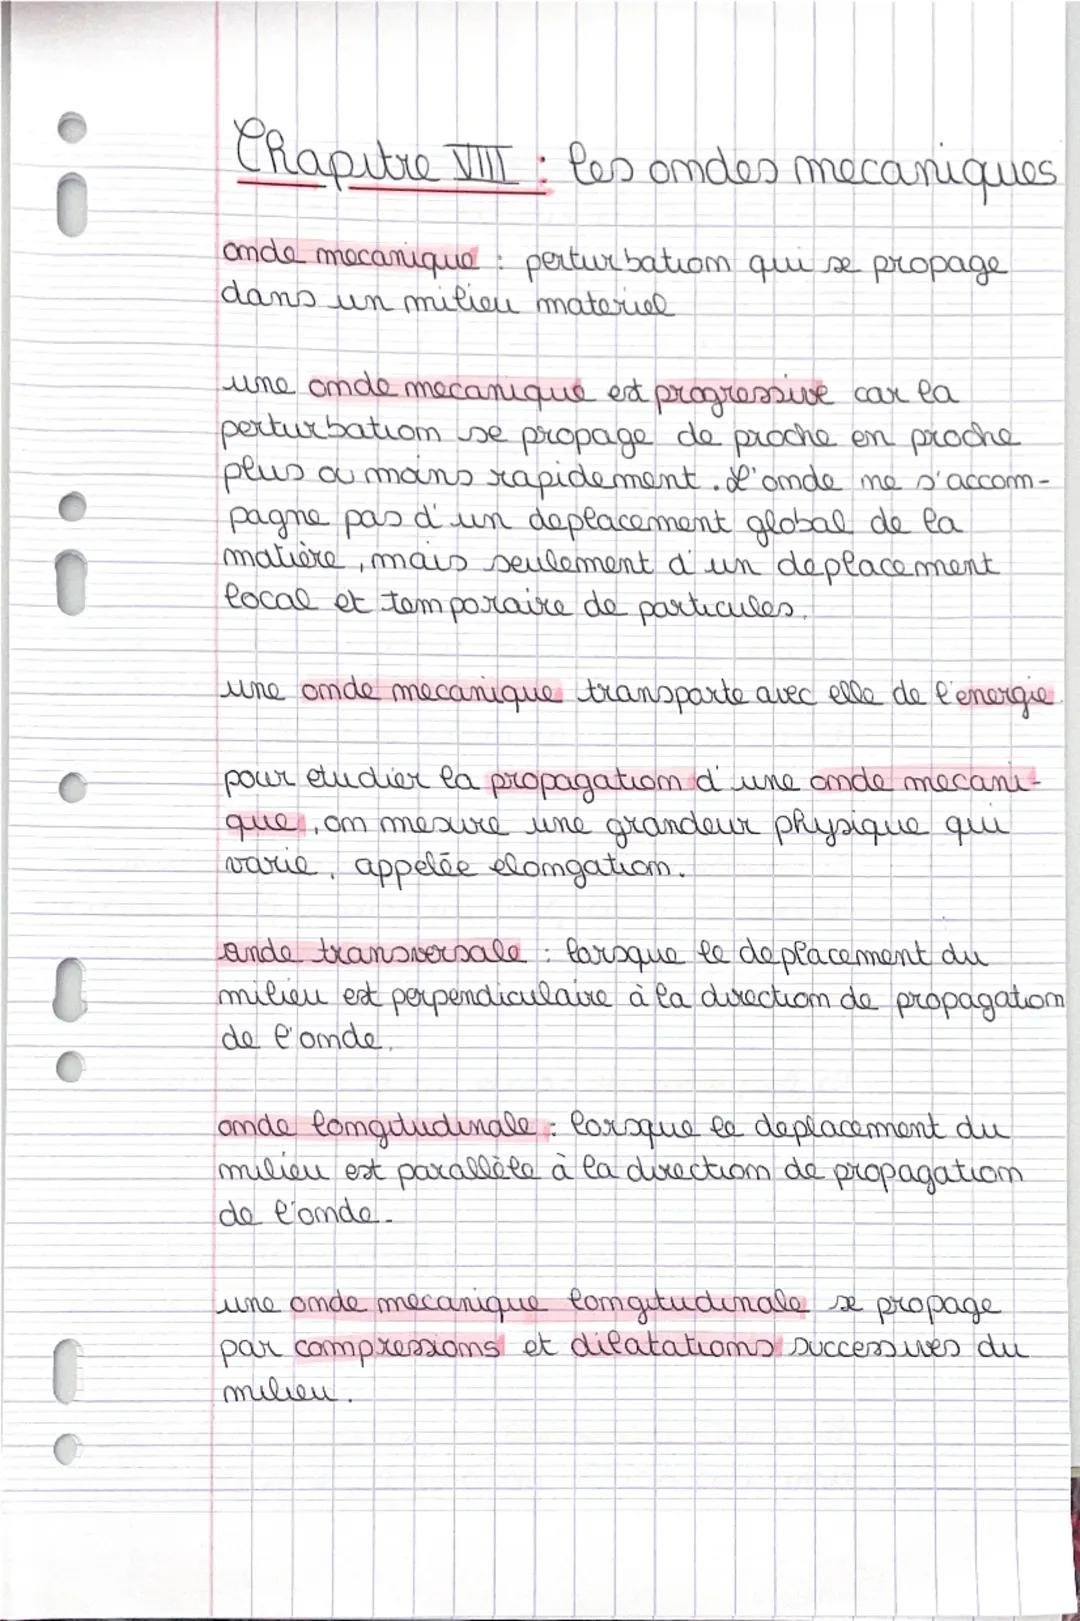 Chapitre VIII : les ondes mecaniques
onde mecanique : perturbation qui se propage
dans un milieu materiel
une onde mecanique est progressive car la
perturbation se propage de proche en proche
plus ou moins rapidement. L'onde ne s'accom-
pagne pas d'un deplacement global de la
matière, mais seulement d'un deplacement
local et temporaire de particules.
une onde mecanique transporte avec elle de l'energie.
pour etudier la propagation d'une onde mecani-
que, on mesure une grandeur physique qui
varie, appelée elongation.
onde transversale : lorsque le deplacement du
milieu est perpendiculaire à la direction de propagation
de l'onde.
onde longitudinale : lorsque le deplacement du
milieu est parallèle à la direction de propagation
de l'onde.
une onde mecanique longitudinale se propage
par compressions et dilatations successives du
milieu.